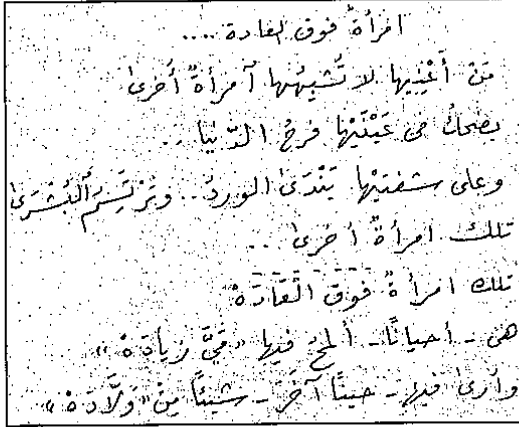 امرأة فوق العادة ....
مَنْ أَعْنِيها لا تُشْبِهُها آمرأةٌ أخرى
يضحكُ في عَيْنَيْها فرحُ الدّنيا ..
وعلى شفتيْها يَنْدَى الوردُ .. وتَرْتَسِمُ ٱلْبُشْرَى
تلك امرأةٌ أخرى ..
تلك امرأةٌ فَوْقَ الْعَادَهْ
هي - أحيانًا - ألمحُ فيها «مَيَّ زيادَهْ»
وأرى فيها - حينًا آخَرَ - شيئًا مِنْ «وَلَّادَهْ»